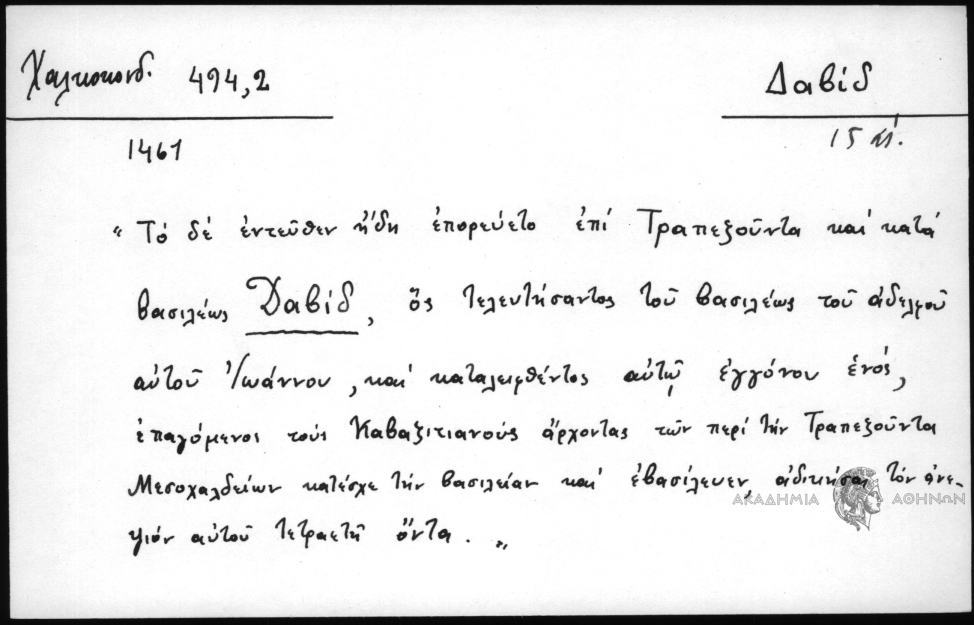 Χαλκοκονδ. 494,2
Δαβίδ
1461
15 αἰ.
"Τό δέ ἐντεῦθεν ἤδη ἐπορεύετο ἐπί Τραπεζοῦντα καί κατά
βασιλέως Δαβίδ, ὅς τελευτήσαντος τοῦ βασιλέως τοῦ ἀδελφοῦ
αὐτοῦ Ἰωάννου, καί καταλειφθέντος αὐτῷ ἐγγόνου ἑνός,
ἐπαγόμενοι τούς Καβαζιτιανούς ἄρχοντας τῶν περί τήν Τραπεζοῦντα
Μεσοχαλδείων κατέσχε τήν βασιλείαν καί ἐβασίλευεν, ἀδικήσας τόν ἀνε-
ψιόν αὐτοῦ τετραετῆ ὄντα. "
ΑΚΑΔΗΜΙΑ ΑΘΗΝΩΝ